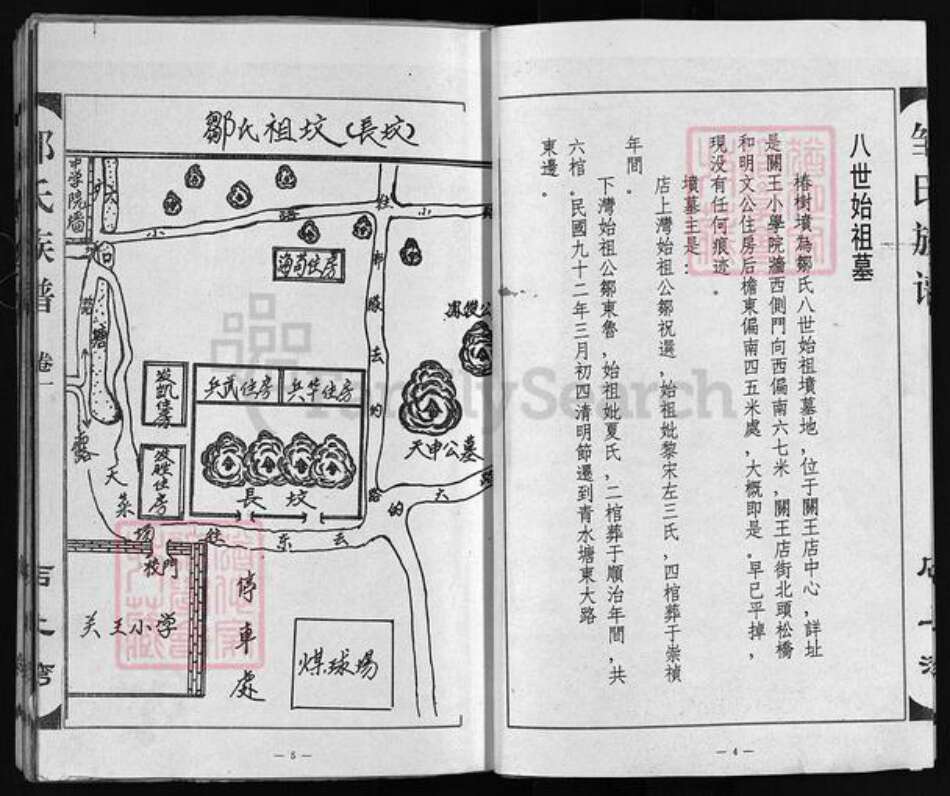 八世始祖墓
椿樹墳為鄒氏八世始祖墳墓地，位于關王店中心，詳址
是關王小學院牆西側門向西偏南六七米，關王店街北頭松橋
和明文公住房后檐東偏南四五米處，大概即是。早已平掉，
現没有任何痕迹。
墳墓主是：
店上灣始祖公鄒祝選，始祖妣黎宋左三氏，四棺葬于崇禎
年間。
下灣始祖公鄒東魯，始祖妣夏氏，二棺葬于順治年間，共
六棺。民國九十二年三月初四清明節遷到青水塘東大路
東邊。
—4—
鄒氏族譜
卷一
店上灣
鄒氏祖坟（長坟）
中学院牆
小
路
往
小
海苟住房
天申公墓
兵武住房
兵华住房
發凱住房
發胜住房
長坟
塘
露
天
菜
场
往
东
去
的
大
路
校門
关王小学
停車處
煤球場
—5—
FamilySearch